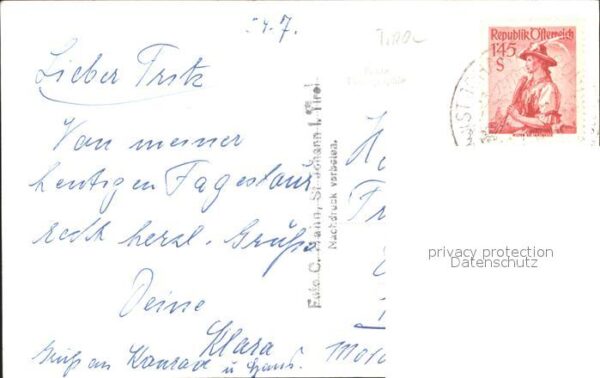 4.7.
TIROL
Lieber Fritz
Von meiner
heutigen Tagestour
recht herzl. Grüße
Deine
Klara
Gruß an Konrad u. Hans.
Foto C. Mann, St. Johann i. Tirol
Nachdruck verboten.
Republik Österreich
1.45
S
privacy protection
Datenschutz